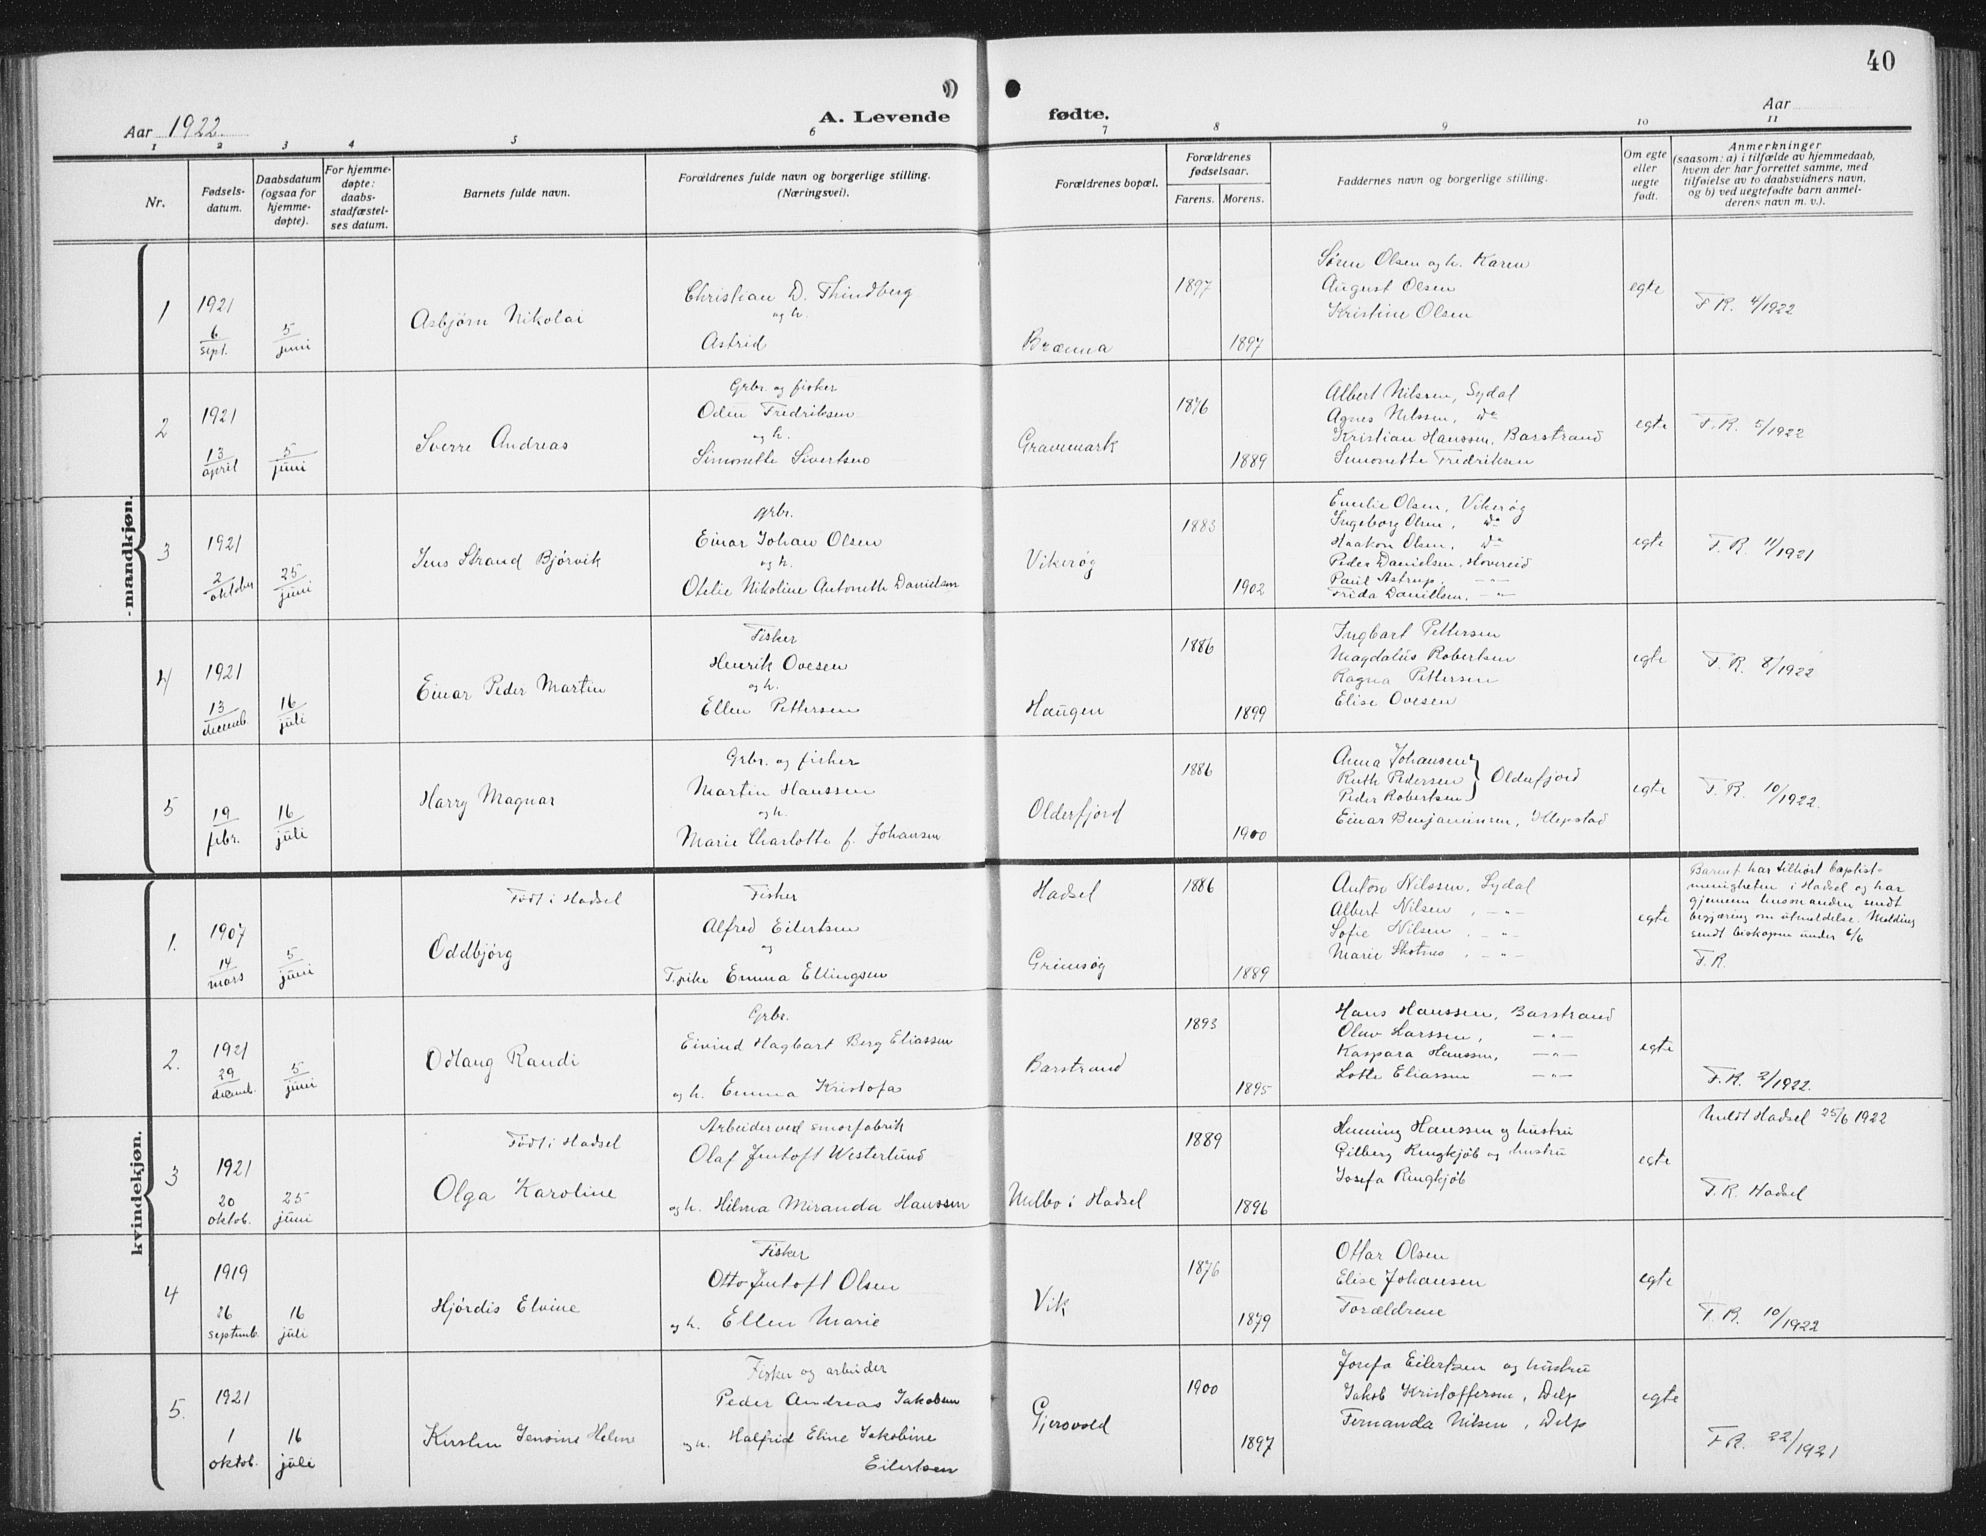 40
Aar 1922.
A. Levende fødte.
Aar
1 2 3 4 5 6 7 8 9 10 11
Nr.
Fødsels-
datum.
Daabsdatum
(ogsaa for
hjemme-
døpte).
For hjemme-
døpte:
daabs-
stadfæstel-
ses datum.
Barnets fulde navn.
Forældrenes fulde navn og borgerlige stilling.
(Næringsvei).
Forældrenes bopæl.
Forældrenes
fødselsaar.
Farens. Morens.
Faddernes navn og borgerlige stilling.
Om egte
eller
uegte
født.
Anmerkninger
(saasom: a) i tilfælde av hjemmedaab,
hvem der har forrettet samme, med
tilføielse av to daabsvidners navn,
og b) ved uegtefødte barn anmel-
derens navn m. v.).
mandkjøn.
1
1921
6
sept.
5
juni
Asbjørn Nikolai
Christian D. Thindberg
og h.
Astrid
Brænna
1897
1897
Søren Olsen og h. Karen
August Olsen
Kristine Olsen
egte
F.R. 4/1922
2
1921
13
april
5
juni
Sverre Andreas
Grbr. og fisker
Odin Fredriksen
og h.
Simonette Sivertsen
Gravemark
1876
1889
Albert Nilssen, Sydal
Agnes Nilssen, do
Kristian Hanssen, Barstrand
Simonette Fredriksen
egte
F.R. 5/1922
3
1921
2
oktober
25
juni
Jens Strand Bjørvik
grbr.
Einar Johan Olsen
og h.
Otelie Nikoline Antonette Danielsen
Vikerøg
1883
1902
Emilie Olsen, Vikerøg
Ingeborg Olsen, do
Haakon Olsen, do
Peder Danielsen, Hovereid
Paul Astrup, -"-
Frida Danielsen, -"-
egte
F.R. 11/1921
4
1921
13
decemb.
16
juli
Einar Peder Martin
Fisker
Henrik Ovesen
og h.
Ellen Pettersen
Haugen
1886
1899
Ingbart Pettersen
Magdalus Robertsen
Ragna Pettersen
Elise Ovesen
egte
F.R. 8/1922
5
19
febr.
16
juli
Harry Magnar
Grbr. og fisker
Martin Hanssen
og h.
Marie Charlotte f. Johansen
Olderfjord
1886
1900
Anna Johansen
Ruth Pedersen } Olderfjord
Peder Robertsen
Einar Benjaminsen, Klepstad
egte
F.R. 10/1922.
kvindekjøn.
1.
1907
14
mars
5
juni
Født i Hadsel
Oddbjørg
Fisker
Alfred Eilertsen
og
Pike Emma Ellingsen
Hadsel
Grimsøg
1886
1889
Anton Nilssen, Sydal
Albert Nilsen, -"-
Sofie Nilsen, -"-
Marie Skotnes, -"-
egte
Barnet har tilhørt baptist-
menigheten i Hadsel og har
gjennem husmanden sendt
begjæring om utmeldelse. Melding
sendt biskopen under 6/6
F.R.
2.
1921
29
decemb.
5
juni
Odlaug Randi
Grbr.
Eivind Hagbart Berg Eliassen
og h. Emma Kristofa
Barstrand
1893
1895
Hans Hanssen, Barstrand
Olav Larssen, -"-
Kaspara Hanssen, -"-
Lotte Eliassen -"-
egte
F.R. 2/1922.
3
1921
20
oktob.
25
juni
Født i Hadsel
Olga Karoline
Arbeider ved smørfabrik
Olaf Jentoft Westerlund
og h. Hilma Miranda Hanssen
Melbo i Hadsel
1889
1896
Henning Hanssen og hustru
Pilberg Ringkjøb og hustru
Josefa Ringkjøb
egte
Meldt Hadsel 25/6 1922
F.R. Hadsel
4
1919
26
septemb.
16
juli
Hjørdis Elvine
Fisker
Otto Jentoft Olsen
og h. Ellen Marie
Vik
1876
1879
Ottar Olsen
Elise Johansen
Forældrene
egte
F.R. 10/1922
5.
1921
1
oktob.
16
juli
Kirsten Jensine Helene
Fisker og arbeider
Peder Andreas Jakobsen
og h. Halfrid Eline Jakobine
Eilertsen
Gjersvold
1900
1897
Josefa Eilertsen og hustru
Jakob Kristoffersen, Delp
Fernanda Nilsen, Delp
egte
F.R. 22/1921